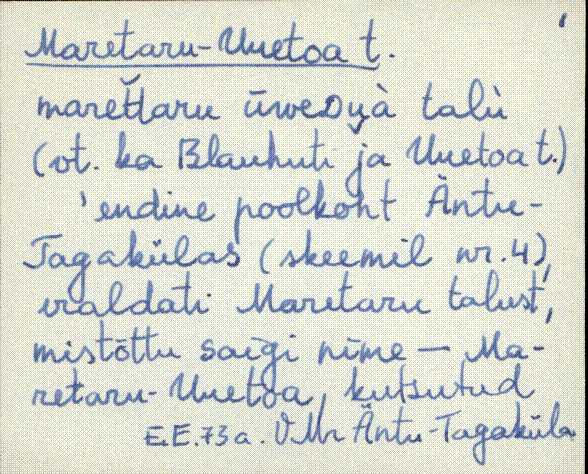 Maretaru-Uuetoa t.
mareťťaru ūweDu̯à talù
(vt. ka Blauhuti ja Uuetoa t.)
'endine poolkoht Äntu-
Tagakülas (skeemil nr. 4),
eraldati Maretaru talust,
mistõttu saigi nime — Ma-
retaru-Uuetoa, kutsutud
E.E. 73 a. VMr Äntu-Tagaküla